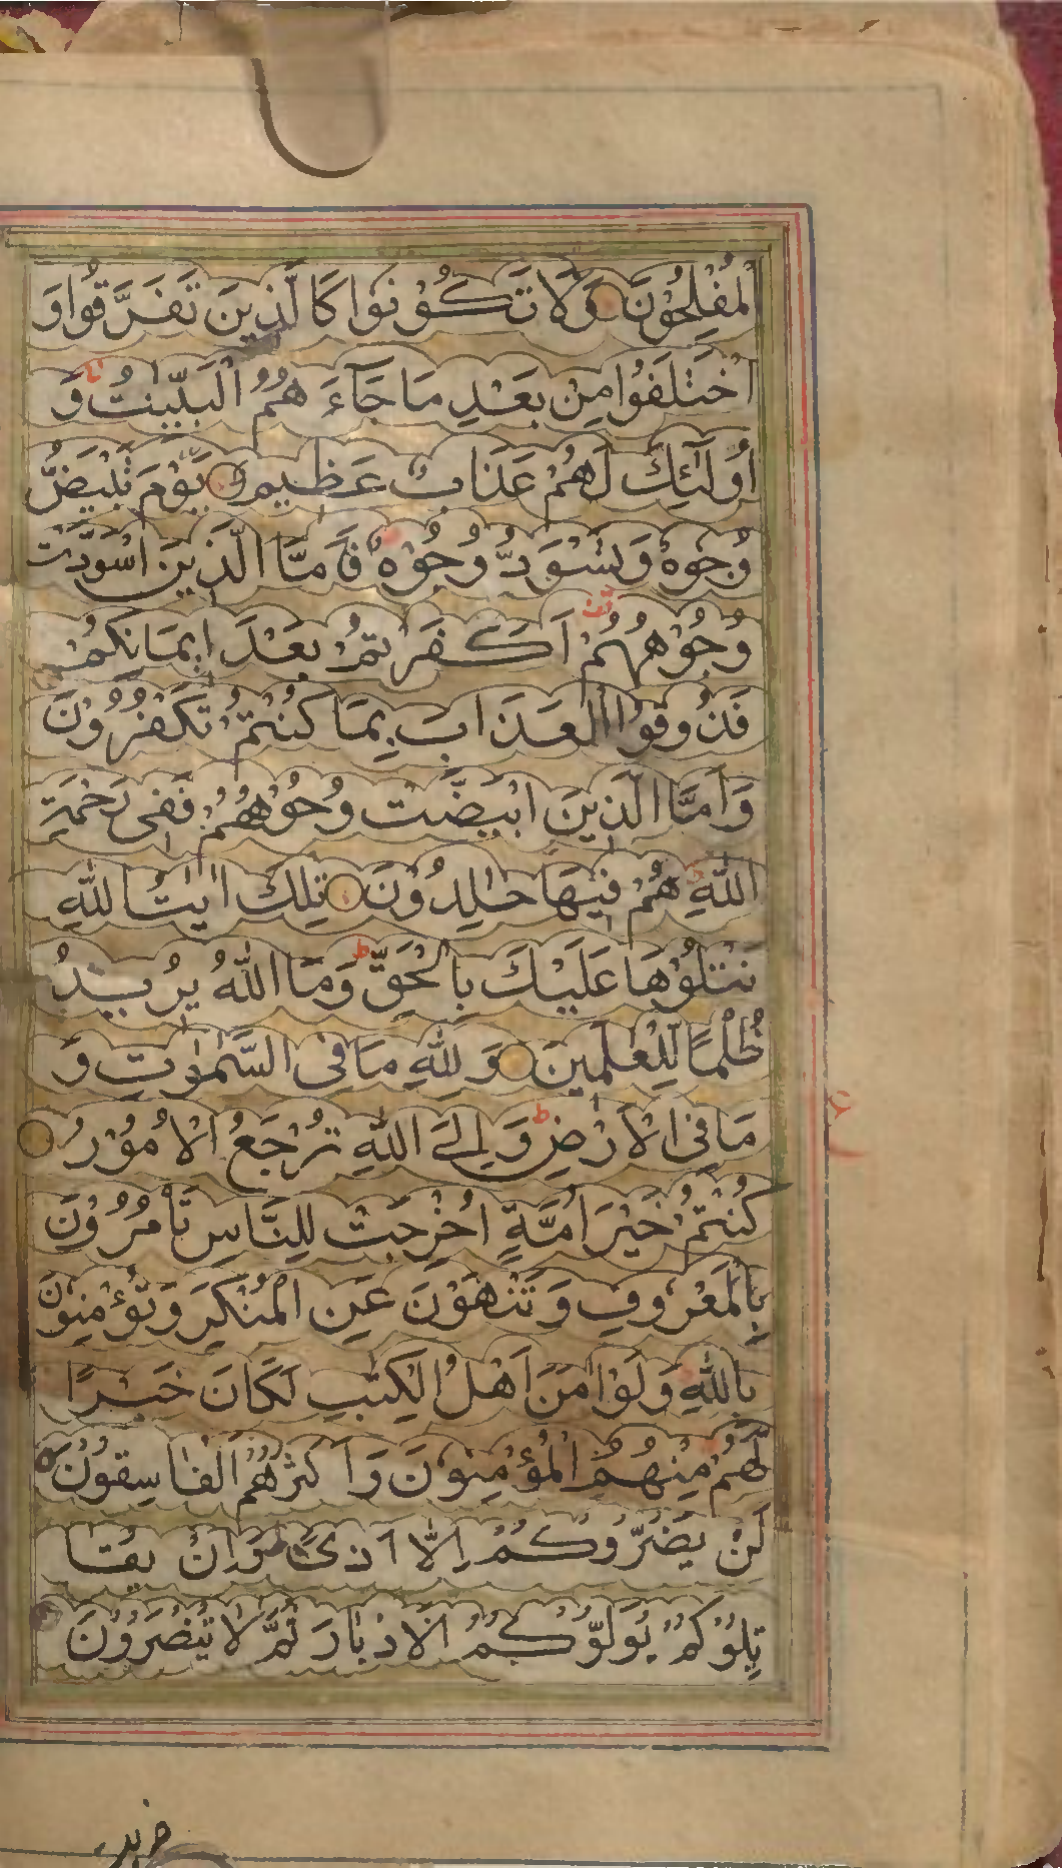 الْمُفْلِحُوْنَ وَلَا تَكُوْنُوْا كَالَّذِيْنَ تَفَرَّقُوا وَ
اخْتَلَفُوْا مِنْ بَعْدِ مَا جَآءَ هُمُ الْبَيِّنٰتُ وَ
اُولٰٓئِكَ لَهُمْ عَذَابٌ عَظِيْمٌ يَّوْمَ تَبْيَضُّ
وُجُوْهٌ وَتَسْوَدُّ وُجُوْهٌ فَاَمَّا الَّذِيْنَ اسْوَدَّتْ
وُجُوْهُهُمْ اَكَفَرْتُمْ بَعْدَ اِيْمَانِكُمْ
فَذُوْقُوا الْعَذَابَ بِمَا كُنْتُمْ تَكْفُرُوْنَ
وَاَمَّا الَّذِيْنَ ابْيَضَّتْ وُجُوْهُهُمْ فَفِى رَحْمَةِ
اللّٰهِ هُمْ فِيْهَا خٰلِدُوْنَ تِلْكَ اٰيٰتُ اللّٰهِ
نَتْلُوْهَا عَلَيْكَ بِالْحَقِّ وَمَا اللّٰهُ يُرِيْدُ
ظُلْمًا لِّلْعٰلَمِيْنَ وَلِلّٰهِ مَا فِى السَّمٰوٰتِ وَ
مَا فِى الْاَرْضِ وَاِلَى اللّٰهِ تُرْجَعُ الْاُمُوْرُ
كُنْتُمْ خَيْرَ اُمَّةٍ اُخْرِجَتْ لِلنَّاسِ تَاْمُرُوْنَ
بِالْمَعْرُوْفِ وَتَنْهَوْنَ عَنِ الْمُنْكَرِ وَتُؤْمِنُوْنَ
بِاللّٰهِ وَلَوْ اٰمَنَ اَهْلُ الْكِتٰبِ لَكَانَ خَيْرًا
لَّهُمْ مِنْهُمُ الْمُؤْمِنُوْنَ وَاَكْثَرُهُمُ الْفٰاسِقُوْنَ
لَنْ يَضُرُّوْكُمْ اِلَّا اَذًى وَاِنْ يُقَا
تِلُوْكُمْ يُوَلُّوْكُمُ الْاَدْبَارَ ثُمَّ لَا يُنْصَرُوْنَ